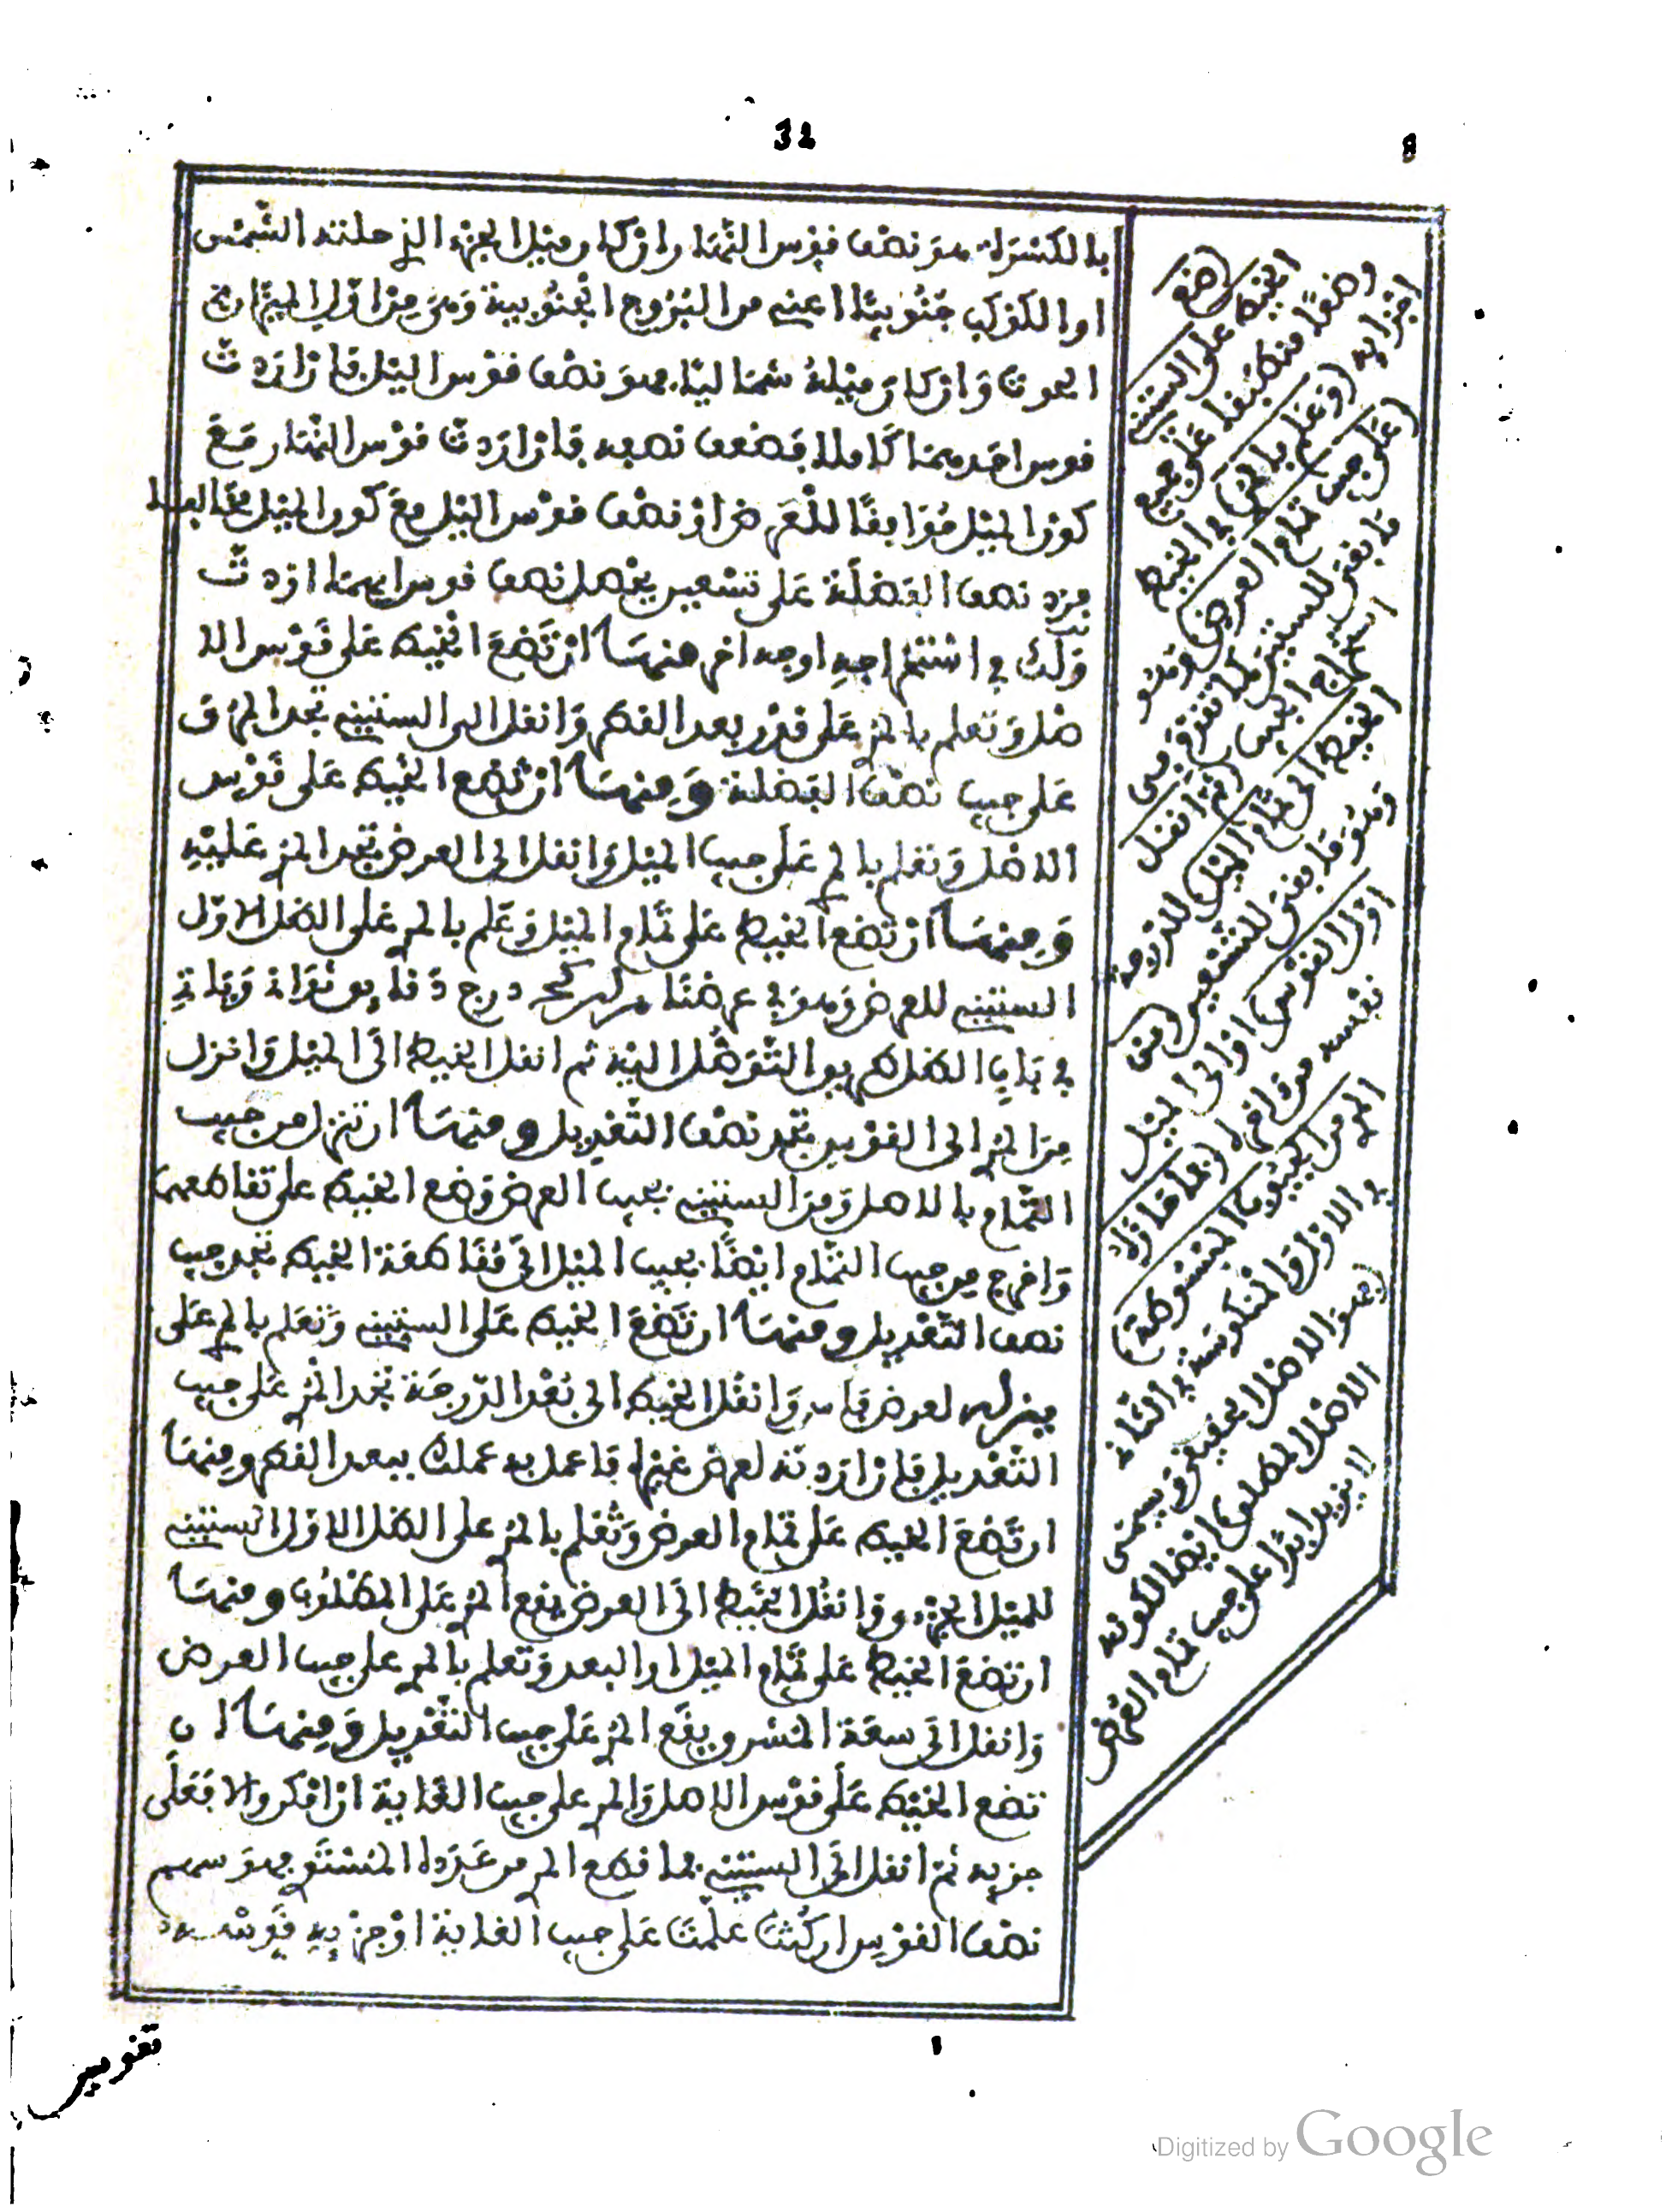 32
8
بالكسرة هو نصف فوس النهار ان كان ميل الجزء الذي حلته الشمس
او الكوكب جنوبيا اعني من البروج الجنوبية وهي من اول الميزان
الحوت وان كان ميله شماليا فهو نصف فوس اليل فان اردت
فوس احدهما كاملا فضعف نصفه فان اردت فوس النهار مع
كون الميل موافقا للعرض او نصف فوس اليل مع كون الميل مخالفا
فزد نصف الفضلة على تسعين يحصل نصف فوس ايهما اردت
ولك في استخراجه اوجه اخر منها ان تضع الخيط على فوس الا
صل وتعلم بالمري على فدر بعد الفطر وانفل الى الستيني تجد المري ف
على جيب نصف الفضلة ومنها ان تضع الخيط على فوس
الاصل وتعلم بالمري على جيب الميل وانفل الى العرض تجد المري عليه
ومنها ان تضع الخيط على تمام الميل وعلم بالمري على الظل الاول
الستيني للعرض وهو في عرضنا درج دفايق
في باب الظل طريق التوصل اليه ثم انفل الخيط الى الميل وانزل
من المري الى الفوس تجد نصف التعديل ومنها ان تنزل من جيب
التمام بالاصل ومن الستيني بجيب العرض وضع الخيط على تفاطعهما
واخرج من جيب التمام ايضا بجيب الميل الى مفاطعة الخيط تجد جيب
نصف التعديل ومنها ان تضع الخيط على الستيني وتعلم بالمري على
لعرض فاس وانفل الخيط الى بعد الدرجة تجد المري على جيب
التعديل فان اردته لعرض غيرها فاعمل به عملك ببعد الفطر ومنها
ان تضع الخيط على تمام العرض وتعلم بالمري على الظل الاول الستيني
للميل الجزء وانفل الخيط الى العرض يفع المري على المطلوب ومنها
ان تضع الخيط على تمام الميل او البعد وتعلم بالمري على جيب العرض
وانفل الى سعة المشرق يفع المري على جيب التعديل ومنها ان
تضع الخيط على فوس الاصل والمري على جيب الغاية ان امكن والا فعلى
جزيه ثم انفل الى الستيني فما فطع المري من عدده المستو فهو سهم
نصف الفوس ان كنت علمت على جيب الغاية او جزيه فوسه
(ضع
الخيط على الستيني
وضعا منطبفا على جميع
اجزايه (وعلم بالمري) في الخيط
(على جيب تمام العرض) وهو
ما بفي للستين كما تفدم في
استخراج الجيب (ثم انفل
الخيط الى تمام الميل) للدرجة
وهو ما بفي للتسعين (من
اول الفوس) او الى الميل
نفسه من اخره (فما فازاه
المري من الجيوب المبسوطة)
في الاول والمنكوسة في الثاني
(فهو الاصل) الحفيفي ويسمى
الاصل المطلق ايضا لكونه
لا يزيد ابدا على جيب تمام العرض